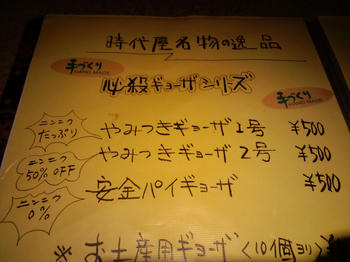 時代屋名物の逸品
手づくり
HAND MADE
必殺ギョーザシリーズ
手づくり
HAND MADE
ニンニク
たっぷり
やみつきギョーザ1号 ¥500
ニンニク
50% OFF
やみつきギョーザ2号 ¥500
ニンニク
0%
安全パイギョーザ ¥500
※お土産用ギョーザ<10個ヨリ>